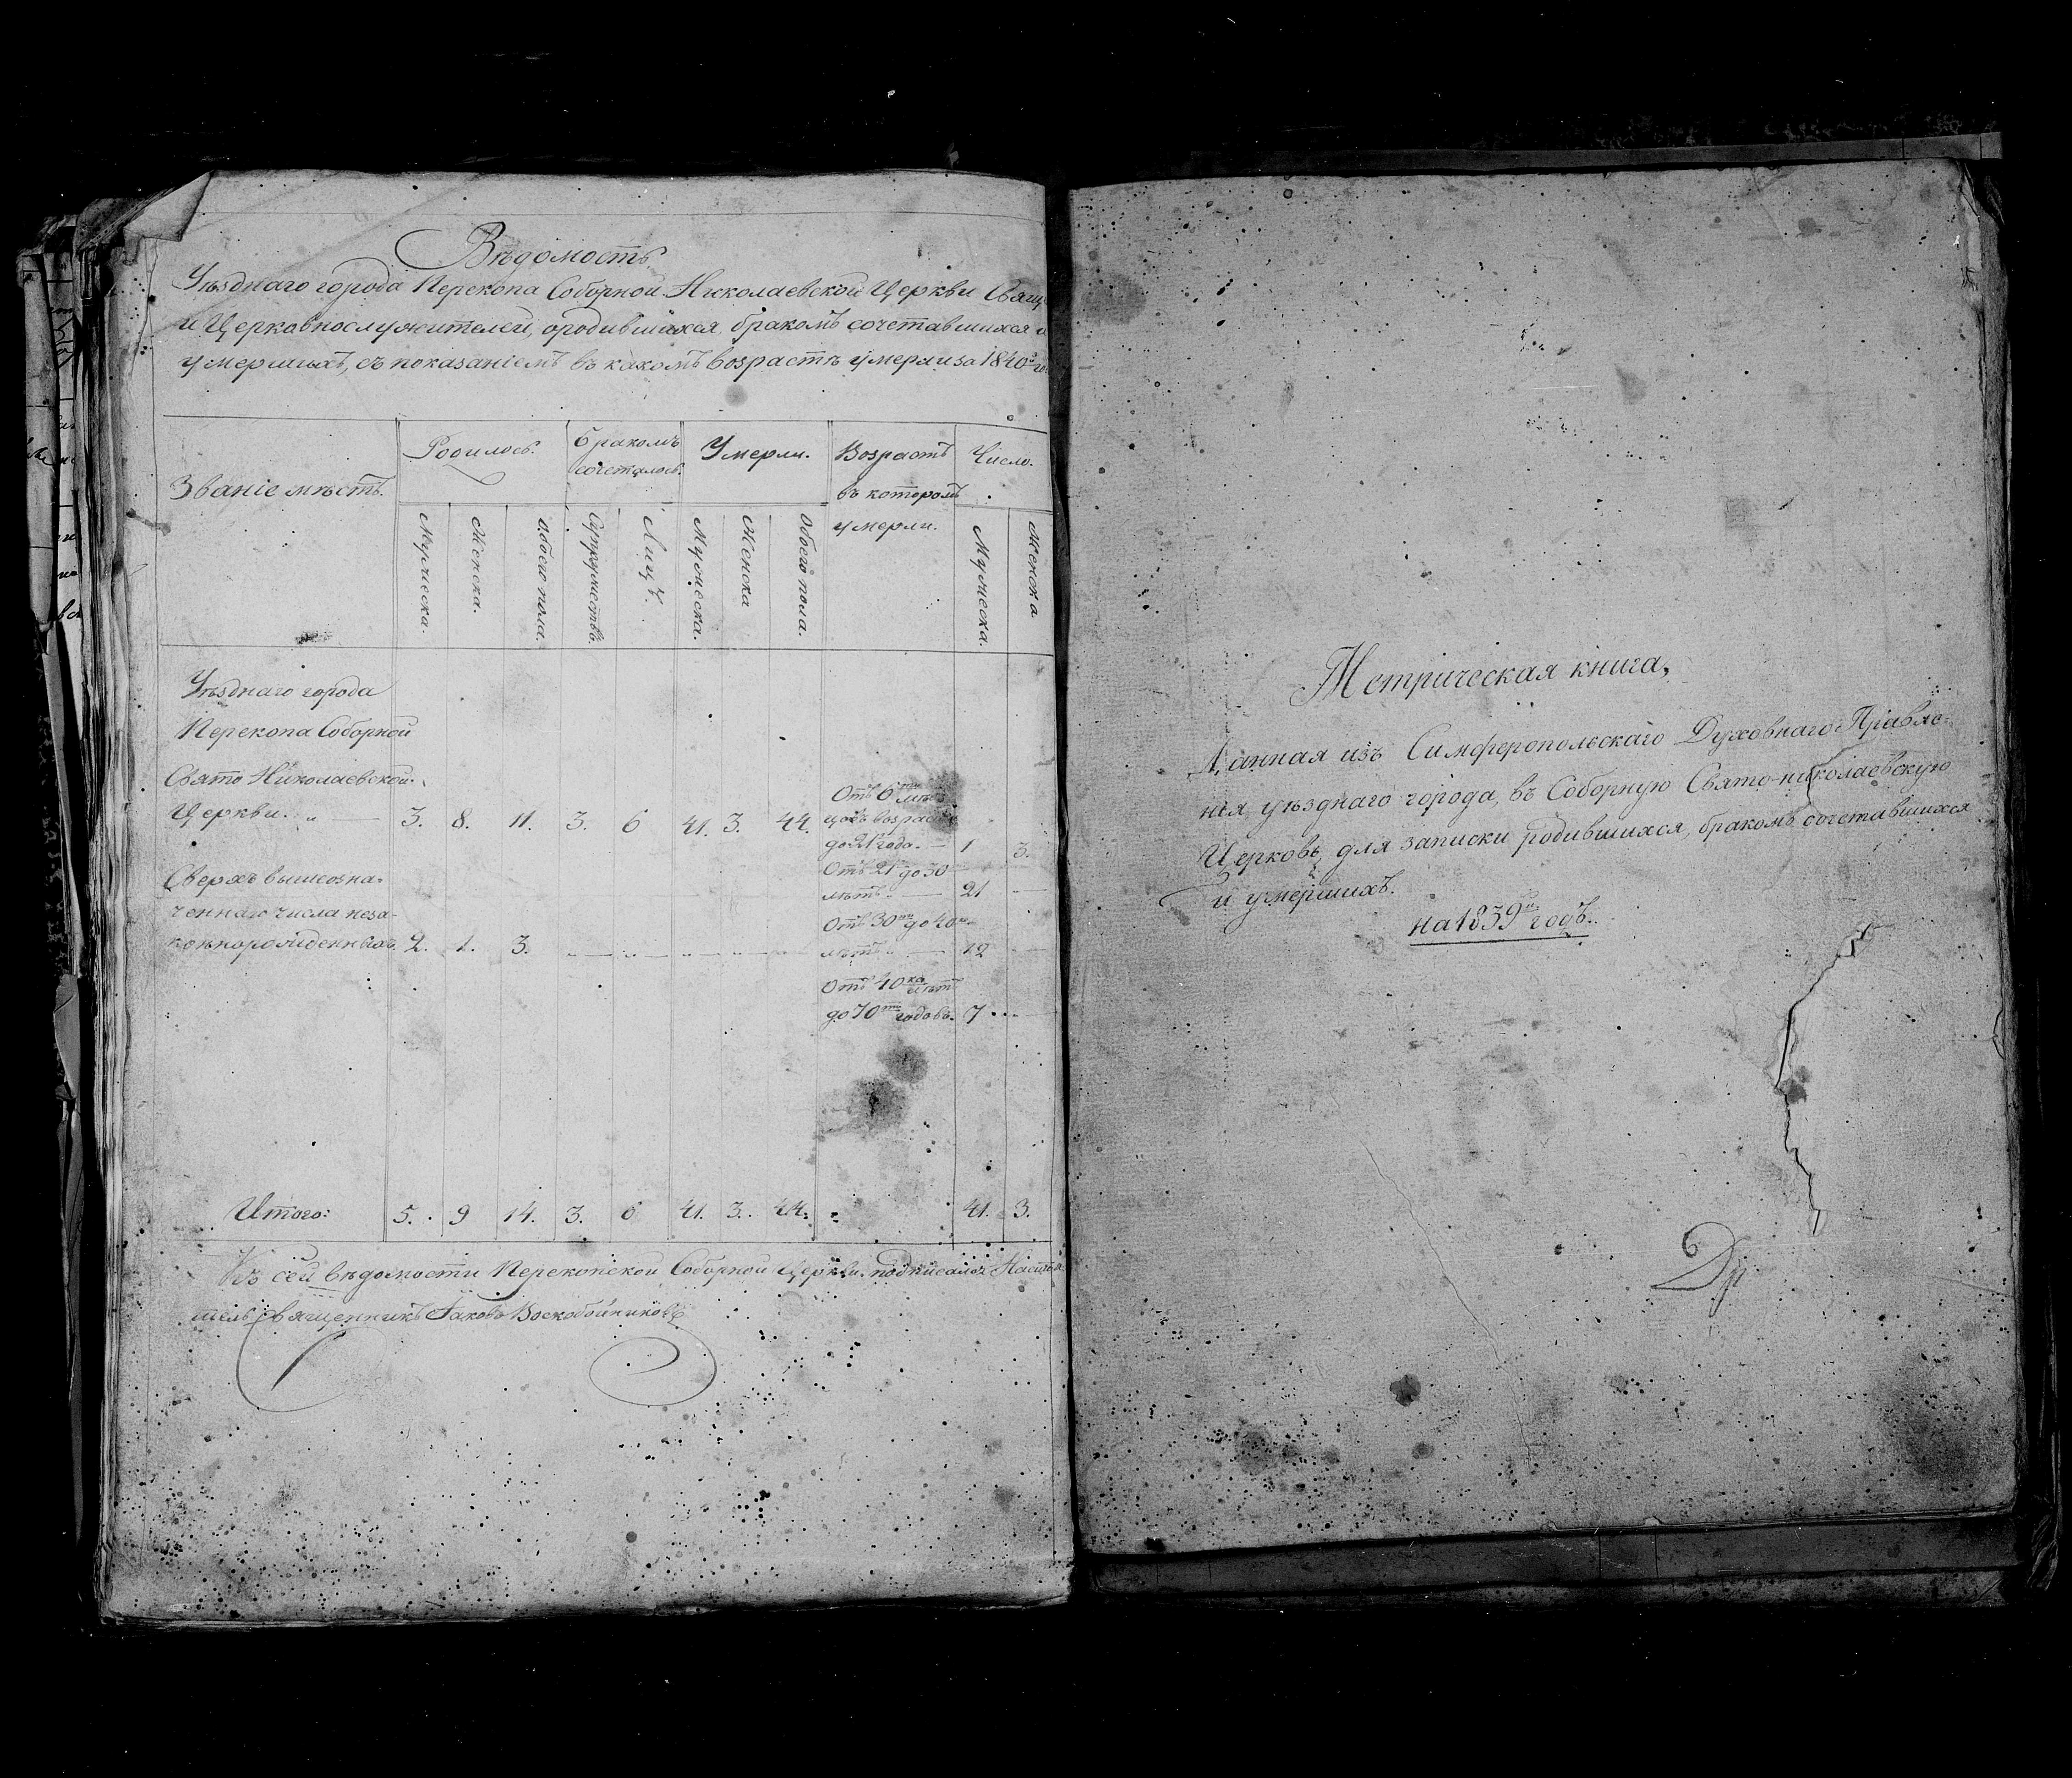 Вѣдомость
Уѣзднаго города Перекопа Соборной Николаевской Церкви Свящ
и Церковнослужителей, ородившихся бракомъ сочетавшихся и
умершихъ, съ показаніемъ въ какомъ возрастѣ умерли за 1840й го
Званіе мѣстъ.
Родилось.
Бракомъ
сочеталось.
Умерли.
Возрастъ
въ которомъ
умерли.
Число.
Мужеска.
Женска.
Обоего пола.
Супружествъ.
Лицъ.
Мужеска.
Женска
Обоего пола.
Мужеска.
Женска
Уѣзднаго города
Перекопа Соборной
Свято Николаевской
Церкви. 3. 8. 11. 3. 6 41. 3. 44.
Отъ 6ти мѣся
цовъ возраста
до 21 года. 1 3.
Отъ 21 до 30
лѣтъ. 21
Отъ 30ти до 40
лѣтъ 12
Отъ 40ка лѣтъ
до 70ти годовъ. 7
Сверхъ вышеозна-
ченнаго числа неза-
коннорожденныхъ. 2. 1. 3.
Итого: 5. 9 14. 3. 6 41. 3. 44. 41. 3.
Къ сей вѣдомости Перекопской Соборной Церкви подписался Настоя
тель Священникъ Іаковъ Воскобойниковъ
Метрическая книга,
Данная изъ Симферопольскаго Духовнаго Правле-
нія, уѣзднаго города, въ Соборную Свято-николаевскую
Церковь, для записки родившихся, бракомъ сочетавшихся
и умершихъ.
на 1839й годъ.